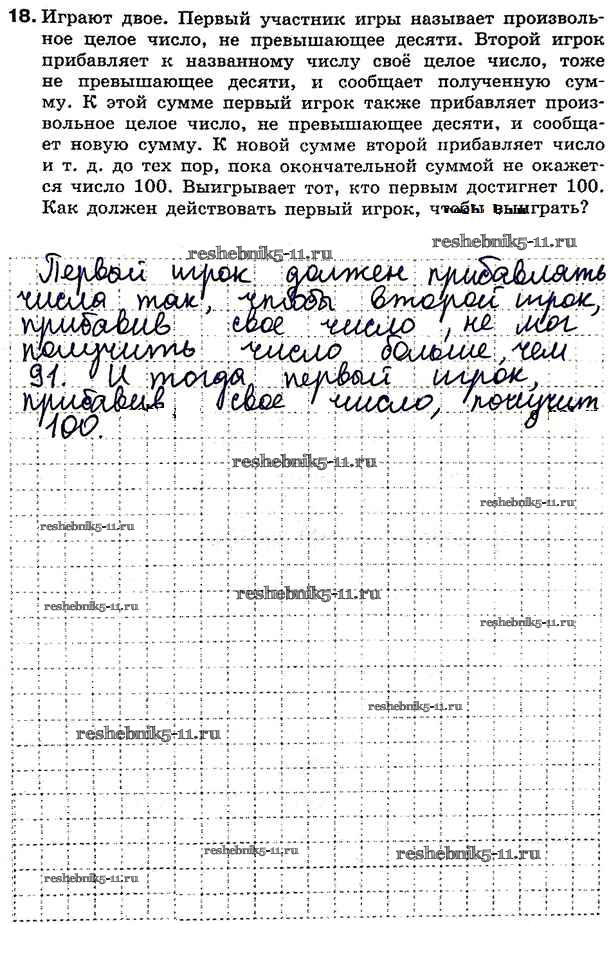 18. Играют двое. Первый участник игры называет произволь-
ное целое число, не превышающее десяти. Второй игрок
прибавляет к названному числу своё целое число, тоже
не превышающее десяти, и сообщает полученную сум-
му. К этой сумме первый игрок также прибавляет произ-
вольное целое число, не превышающее десяти, и сообща-
ет новую сумму. К новой сумме второй прибавляет число
и т. д. до тех пор, пока окончательной суммой не окажет-
ся число 100. Выигрывает тот, кто первым достигнет 100.
Как должен действовать первый игрок, чтобы выиграть?
reshebnik5-11.ru
reshebnik5-11.ru
Первый игрок должен прибавлять
числа так, чтобы второй игрок,
прибавив свое число, не мог
получить число больше, чем
91. И тогда первый игрок,
прибавив, свое число, получит
100.
reshebnik5-11.ru
reshebnik5-11.ru
reshebnik5-11.ru
reshebnik5-11.ru
reshebnik5-11.ru
reshebnik5-11.ru
reshebnik5-11.ru
reshebnik5-11.ru
reshebnik5-11.ru
reshebnik5-11.ru
reshebnik5-11.ru